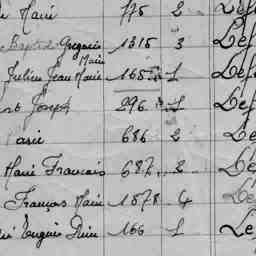 Marie 775 2 Lef
Baptiste Gregoire 1315 3 Lef
Marie
Julien Jean Marie 165 1 Lef
Joseph 296 1 Lef
Marie 686 2 Lef
Marie Francois 687 2 Lef
François Marie 1878 4 Le
Eugène Marie 166 1 Le